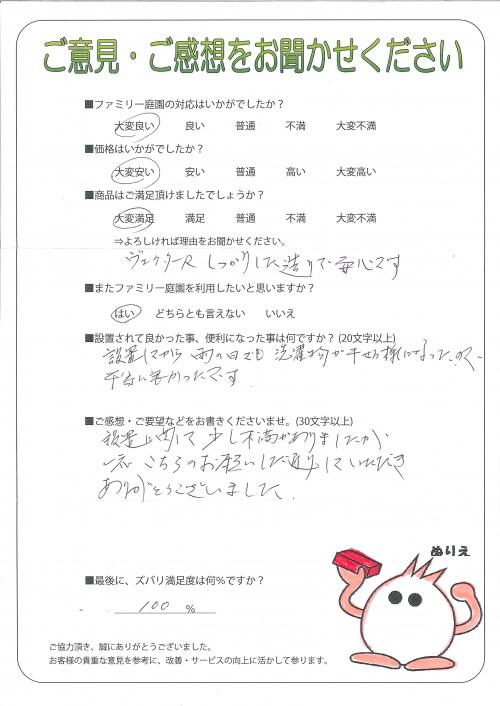 ご意見・ご感想をお聞かせください
■ファミリー庭園の対応はいかがでしたか？
大変良い 良い 普通 不満 大変不満
■価格はいかがでしたか？
大変安い 安い 普通 高い 大変高い
■商品はご満足頂けましたでしょうか？
大変満足 満足 普通 不満 大変不満
⇒よろしければ理由をお聞かせください。
ヴェクターR しっかりした造りで安心です
■またファミリー庭園を利用したいと思いますか？
はい どちらとも言えない いいえ
■設置されて良かった事、便利になった事は何ですか？(20文字以上)
設置してから 雨の日でも 洗濯物が干せる様になったので、
に良かったです
■ご感想・ご要望などをお書きくださいませ。(30文字以上)
設置に関して 少し不満がありましたが
応 こちらのお願いした通りにしていただき
ありがとうございました.
ぬりえ
■最後に、ズバリ満足度は何％ですか？
100 %
ご協力頂き、誠にありがとうございました。
お客様の貴重な意見を参考に、改善・サービスの向上に活かして参ります。